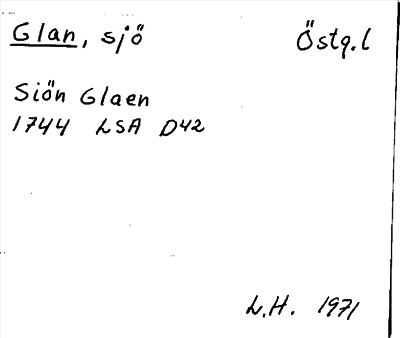 Glan, sjö Östg.l
Siön Glaen
1744 LSA D42
L.H. 1971